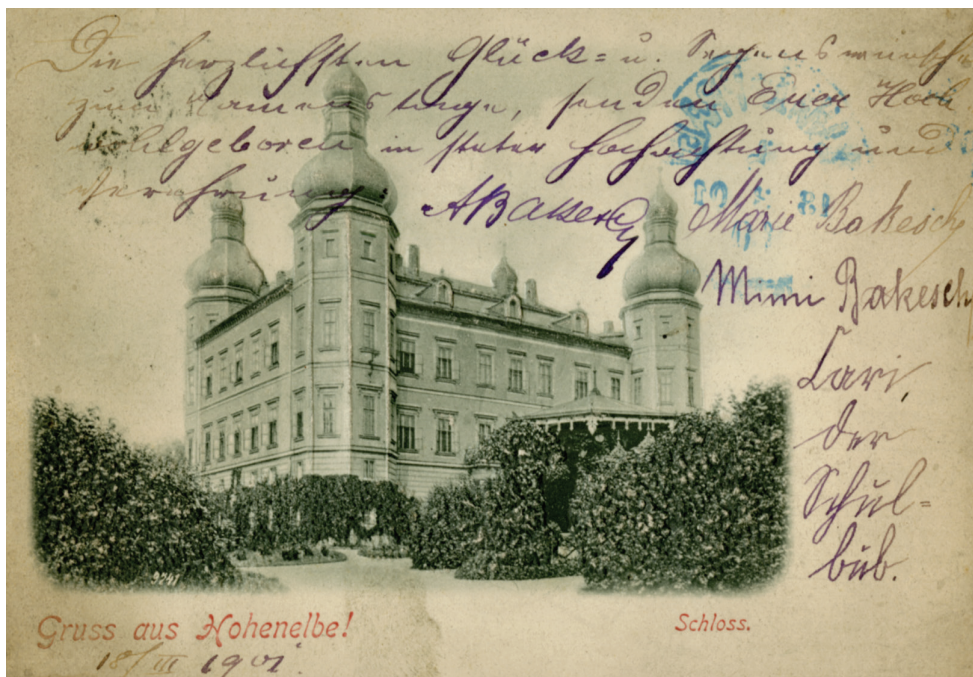 Die herzlichsten Glück= u. Segenswünsche
zum Namenstage, senden Euer Hoch
wohlgeboren in steter Hochachtung und
Verehrung
ABakesch Marie Bakesch
Mimi Bakesch
Lari,
der
Schul=
bub.
9741
Gruss aus Hohenelbe!
Schloss.
18/III 1901.